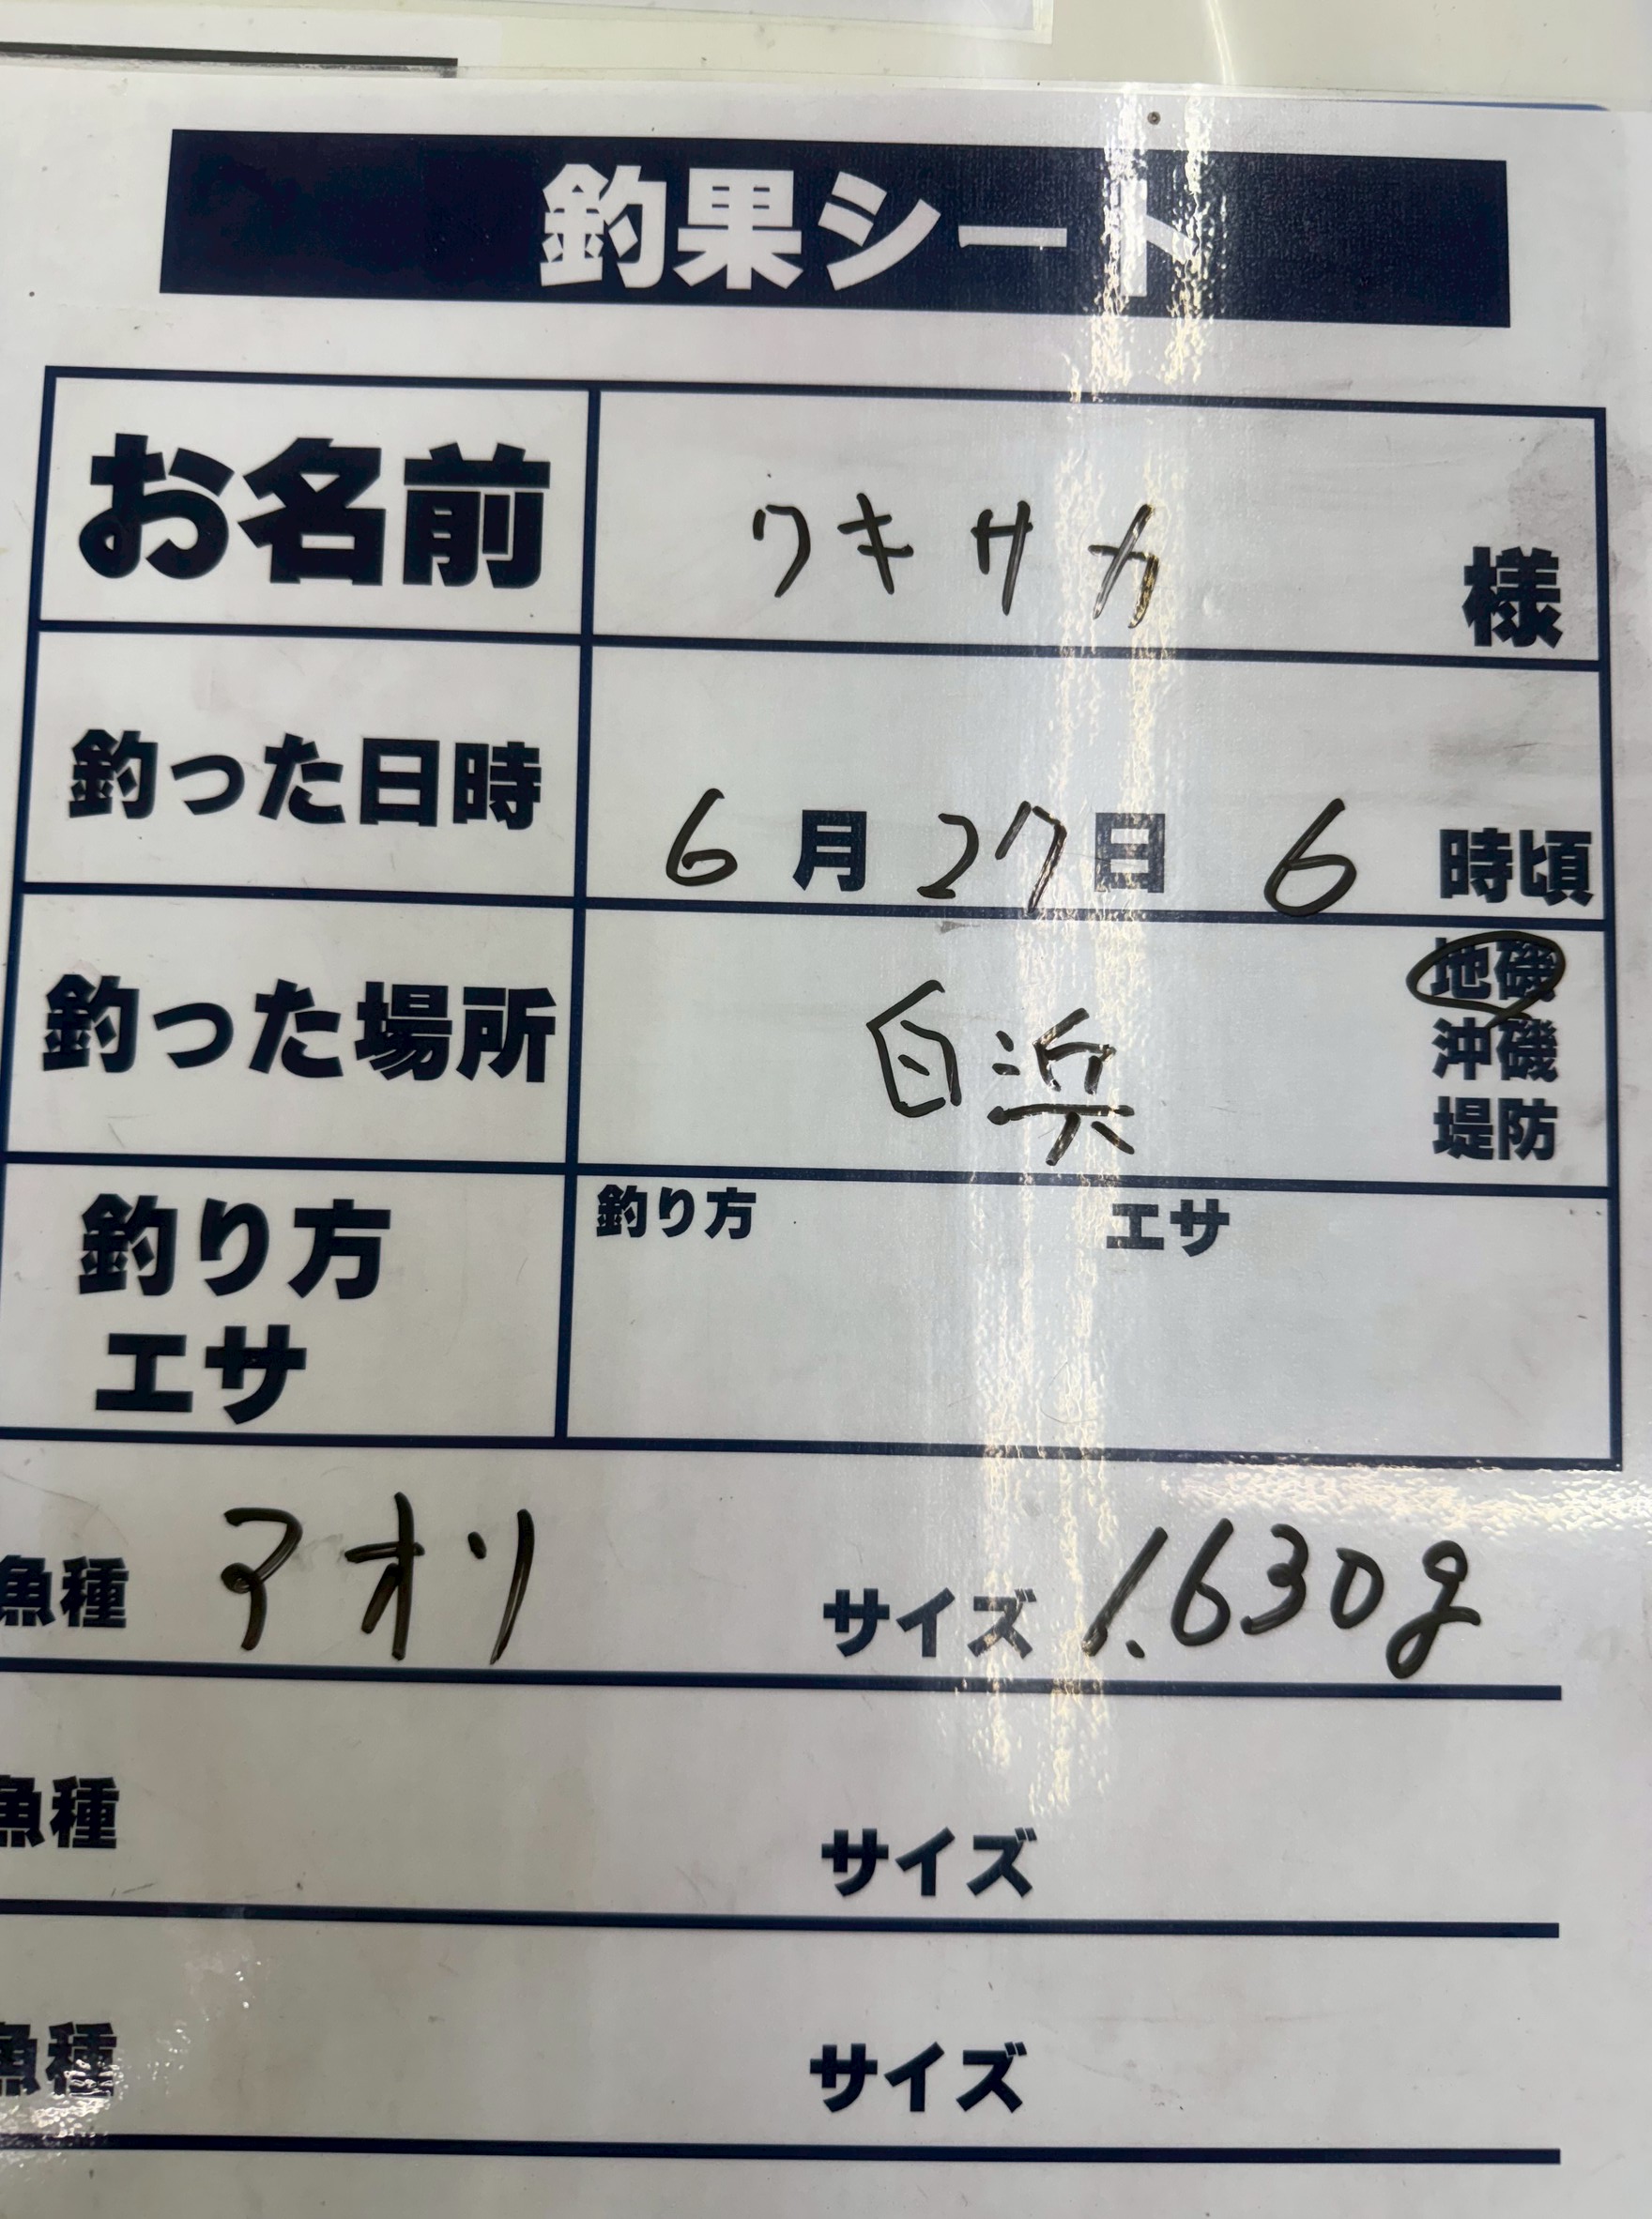 釣果シート
お名前 ワキサカ 様
釣った日時 6月27日 6時頃
釣った場所 白浜 地磯
沖磯
堤防
釣り方 エサ
釣り方
エサ
魚種 アオリ サイズ 1.630g
魚種 サイズ
魚種 サイズ